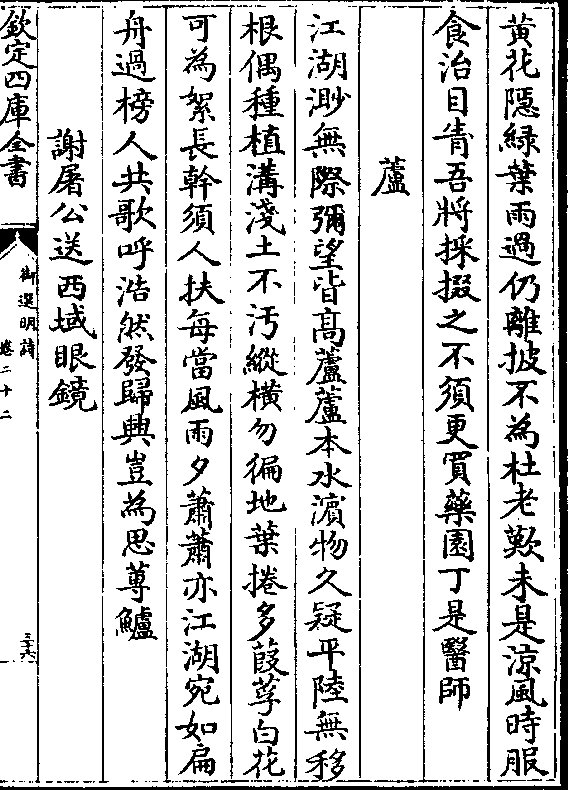 黄花隠緑葉雨過仍離披不為杜老歎未是涼風時服
食治目眚吾將採掇之不須更買藥園丁是醫師
蘆
江湖渺無際彌望皆高蘆蘆本水濵物久疑平陸無移
根偶種植溝淺土不汚縱横勿徧地葉捲多葭莩白花
可為絮長幹須人扶每當風雨夕蕭蕭亦江湖宛如扁
舟過榜人共歌呼浩然發歸興豈為思蓴鱸
謝屠公送西域眼鏡
欽定四庫全書
御選明詩
卷二十二
三十六